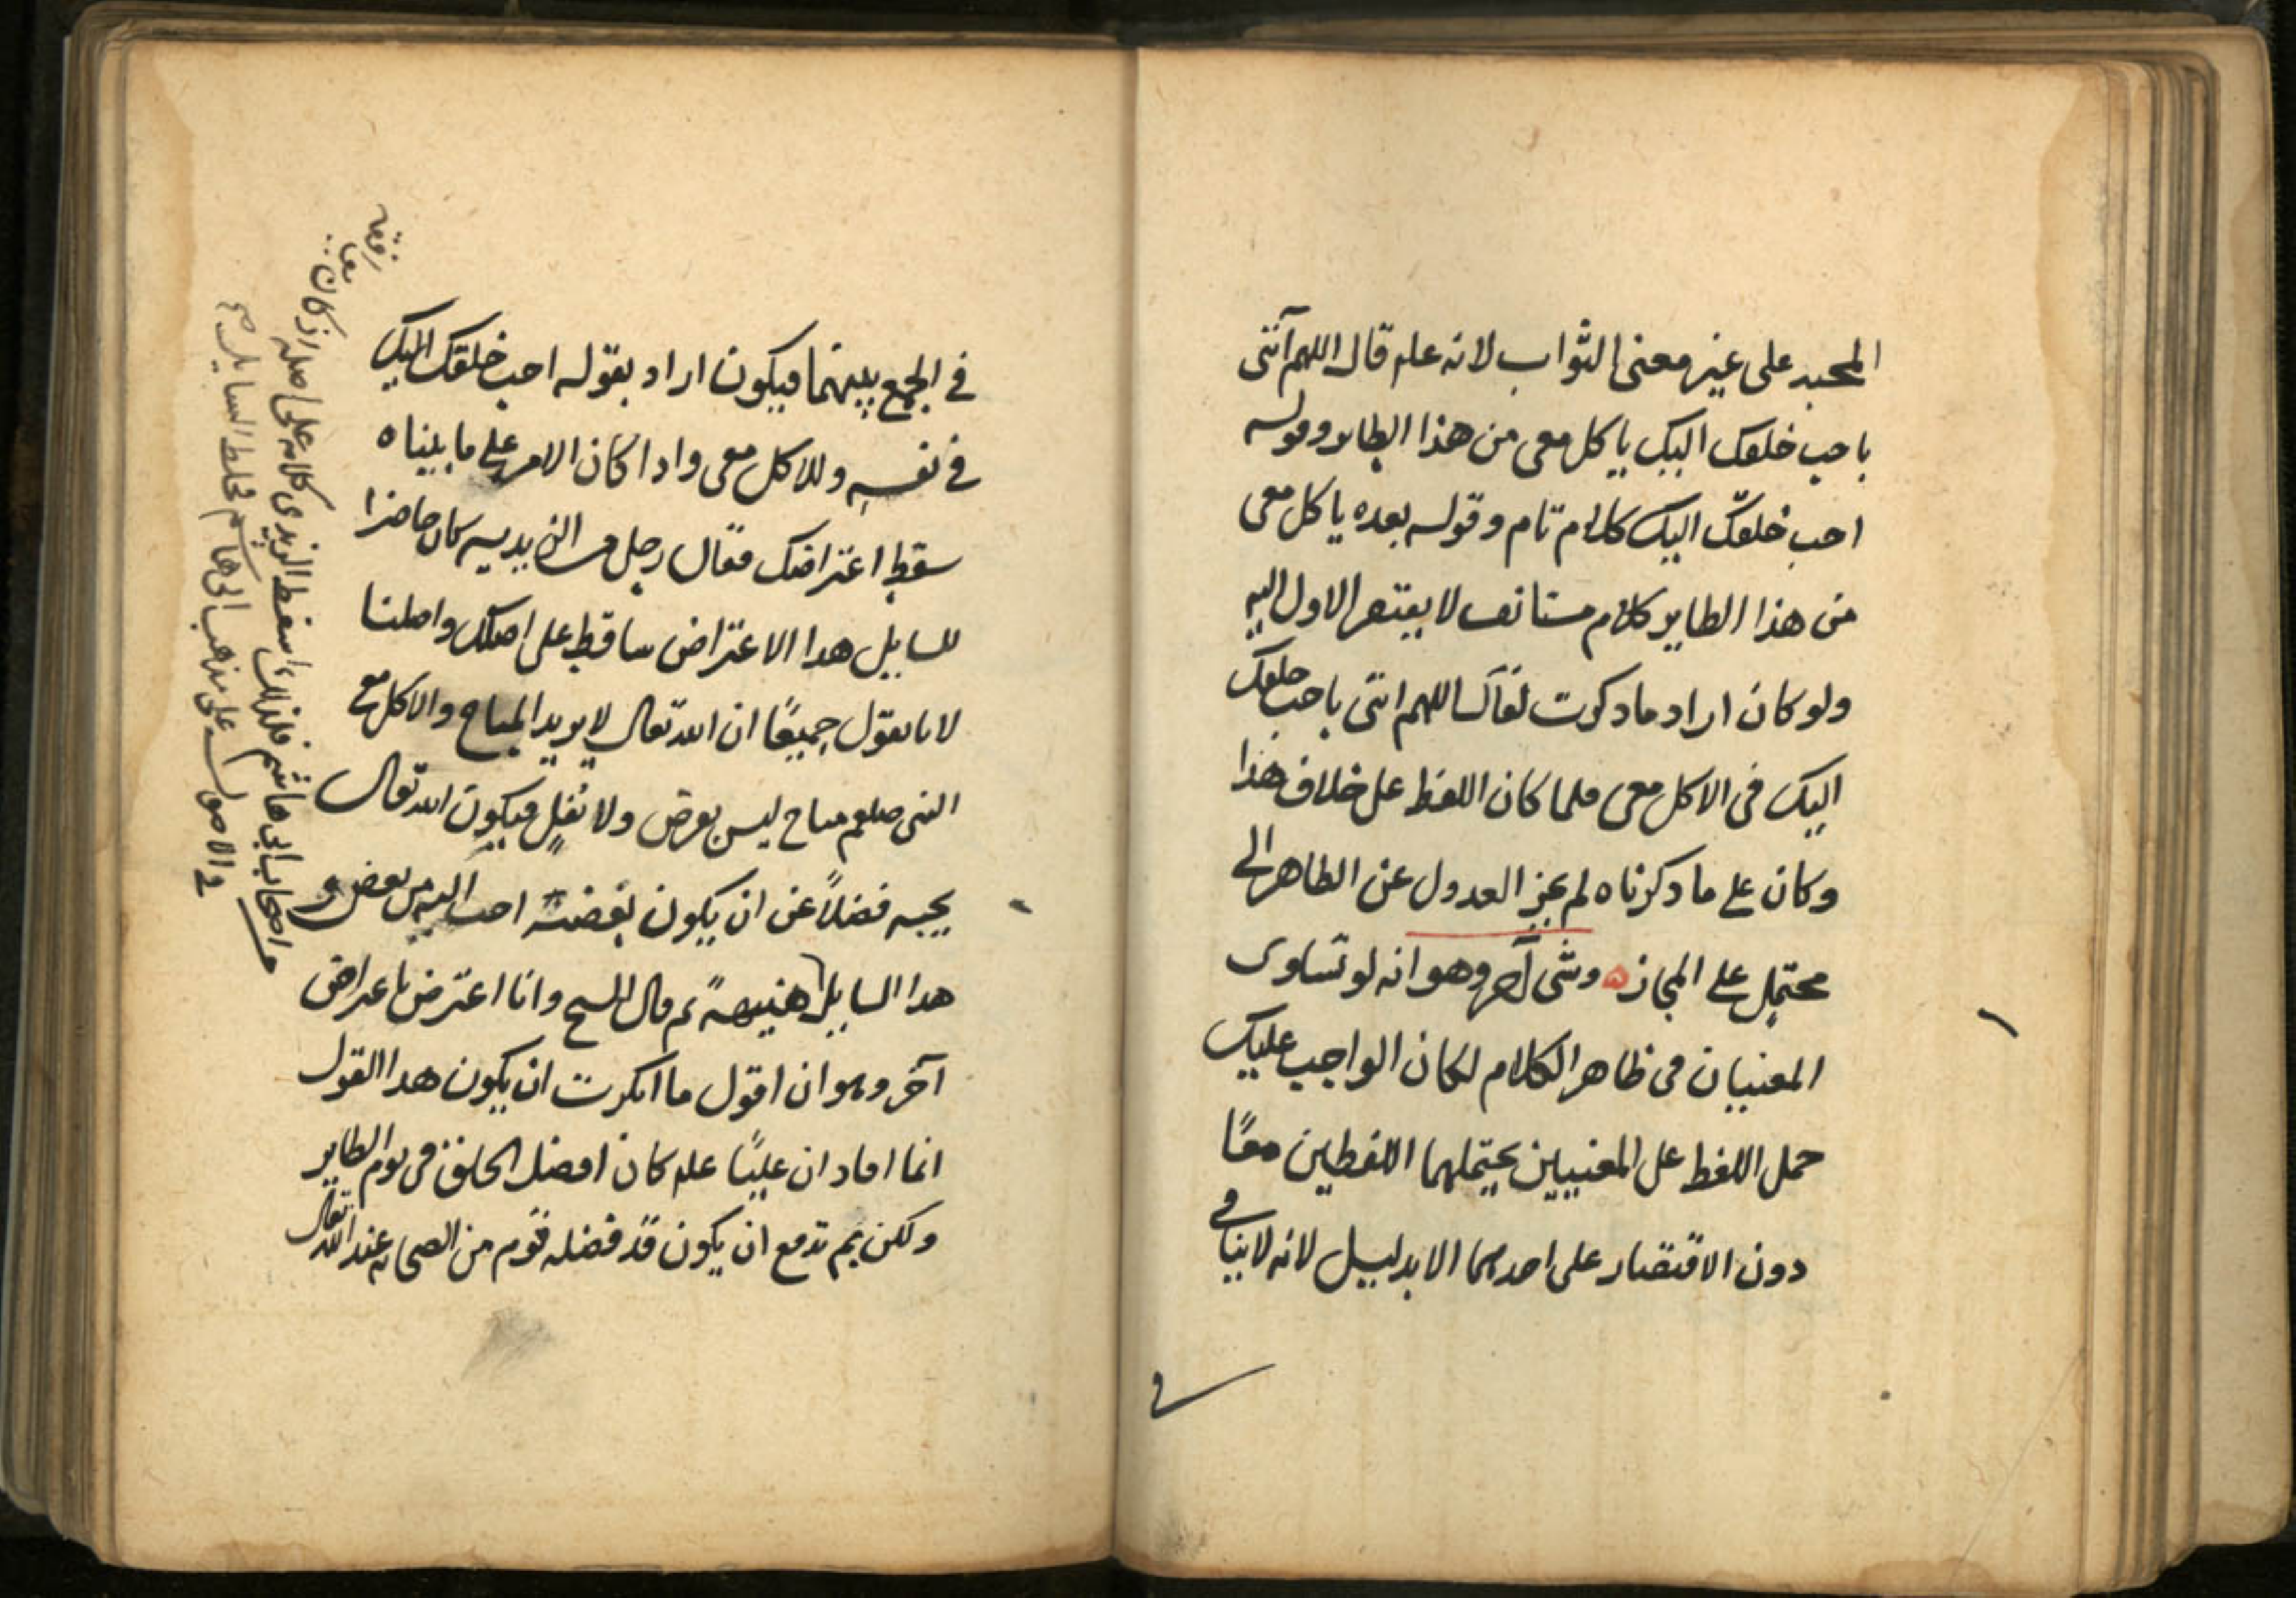 المحبه على غير معنى الثواب لانه علم قال اللهم آتنى
باحب خلقك اليك ياكل معى من هذا الطاير وقوله
احب خلقك اليك كلام تام وقوله بعده ياكل معى
من هذا الطاير كلام مستانف لا يفتقر الاول اليه
ولو كان اراد ما ذكرت لقال اللهم ائتنى باحب خلقك
اليك فى الاكل معى فلما كان اللفظ على خلاف هذا
وكان على ما ذكرناه لم يجز العدول عن الظاهر الى
محتمل على المجاز ه وشى آخر وهو انه لو تساوى
المعنيان فى ظاهر الكلام لكان الواجب عليك
حمل اللفظ على المعنيين يحتملهما اللفظين معًا
دون الاقتصار على احدهما الا بدليل لانه لا ينافى
فى
فى الجمع بينهما فيكون اراد بقوله احب خلقك اليك
فى نفسه وللاكل معى واذا كان الامر على ما بيناه
سقط اعتراضك فقال رجل من الزيديه كان حاضرا
للسايل هذا الاعتراض ساقط على اصلك واصلنا
لانا نقول جميعًا ان الله تعالى لا يريد المباح والاكل مع
النبى صلعم مباح ليس بفرض ولا نفل فيكون الله تعالى
يحبه فضلاً عن ان يكون بعضه احب اليه من بعض و
هذا السايل
ثم قال الشيخ وانا اعترض باعتراض
آخر وهو ان اقول ما انكرت ان يكون هذا القول
انما افاد ان عليًا علم كان افضل الخلق فى يوم الطاير
ولكن بم تدفع ان يكون قد فضله قوم من الصحابه عند الله تعالى
من اصحاب ابى هاشم فلذلك اسقط الزيدى كلامه على اصله اذ كان
فى الاصول على مذهب ابى هاشم فخلط السايل